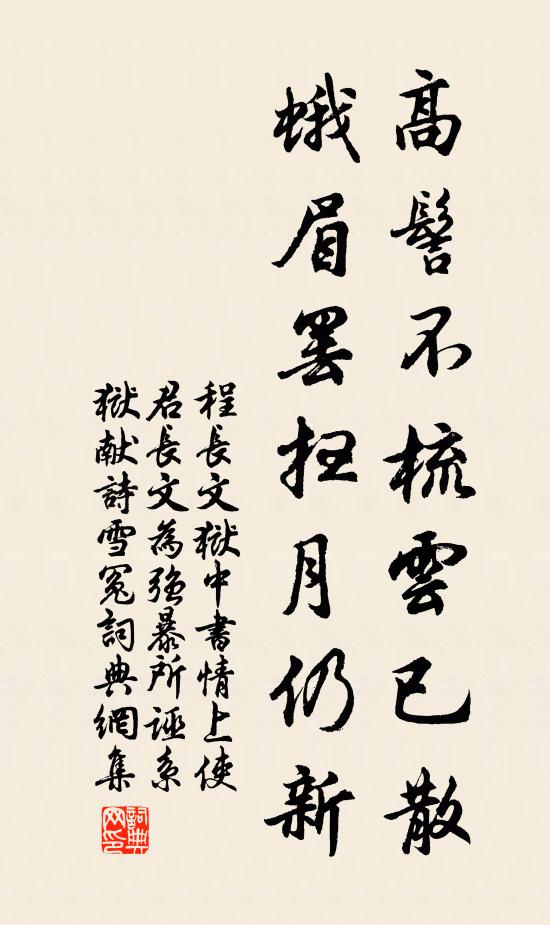 高髻不梳雲已散
蛾眉罷掃月仍新
程長文獄中書情上使
君長文為強暴所誣系
獄献詩雪冤詞典網集
詞典網印